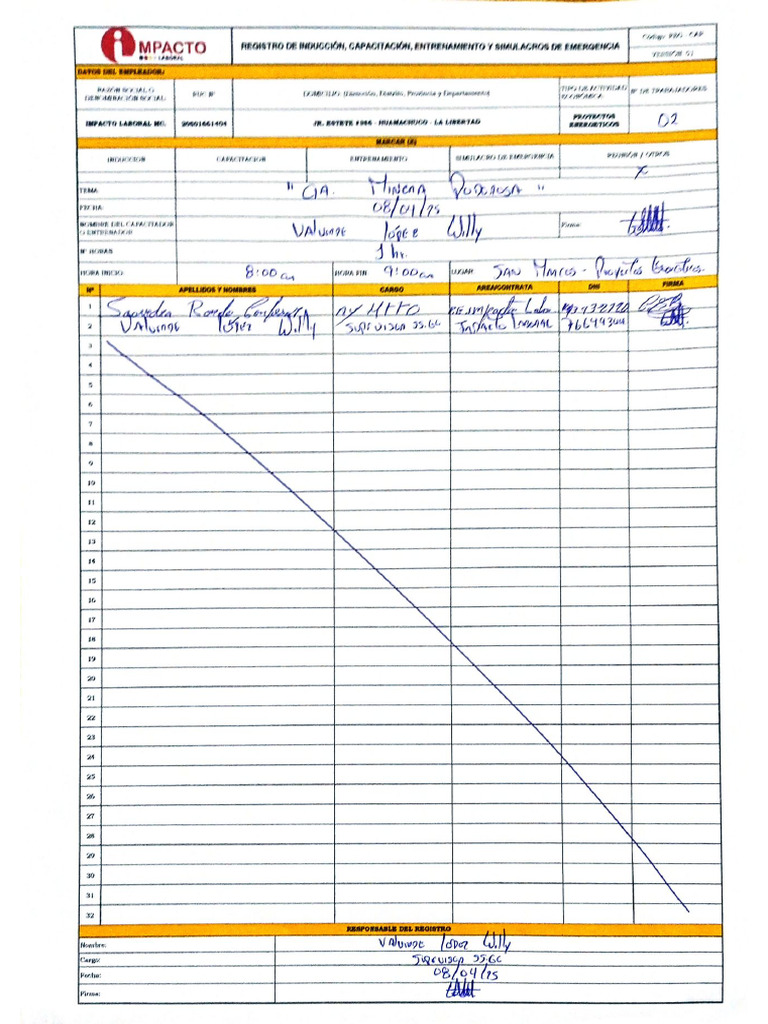 iMPACTO
LABORAL
REGISTRO DE INDUCCIÓN, CAPACITACIÓN, ENTRENAMIENTO Y SIMULACROS DE EMERGENCIA
VERSIÓN: 01
DATOS DEL EMPLEADOR:
RAZÓN SOCIAL O DENOMINACIÓN SOCIAL
RUC Nº
DOMICILIO (Dirección, Distrito, Provincia y Departamento)
TIPO DE ACTIVIDAD ECONÓMICA
Nº DE TRABAJADORES
IMPACTO LABORAL MG.
JR. ESTETE #986 - HUAMACHUCO - LA LIBERTAD
PROYECTOS ENERGETICOS
02
MARCAR (X)
INDUCCION
CAPACITACION
ENTRENAMIENTO
SIMULACRO DE EMERGENCIA
REUNIÓN / OTROS
X
TEMA
"CIA. MINERA PODEROSA"
FECHA:
NOMBRE DEL CAPACITADOR O ENTRENADOR
López Willy
Firma:
Nº HORAS
1 hr.
HORA INICIO:
8:00 am
HORA FIN
9:00 am
LUGAR
SAN MARCOS - Proyectos
Nº APELLIDOS Y NOMBRES CARGO AREA/CONTRATA DNI FIRMA
1
2 López Willy Supervisor
3
4
5
6
7
8
9
10
11
12
13
14
15
16
17
18
19
20
21
22
23
24
25
26
27
28
29
30
31
32
RESPONSABLE DEL REGISTRO
Nombre: López Willy
Cargo: Supervisor
Fecha: 08/04/25
Firma: